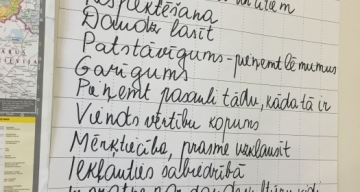 un citiem
Respektēšana
Daudz lasīt
Patstāvīgums - pieņemt lēmumus
Garīgums
Pieņemt pasauli tādu, kāda tā ir
Vienots vērtību kopums
Mērķtiecība, prasme uzklausīt
Iekļauties sabiedrībā